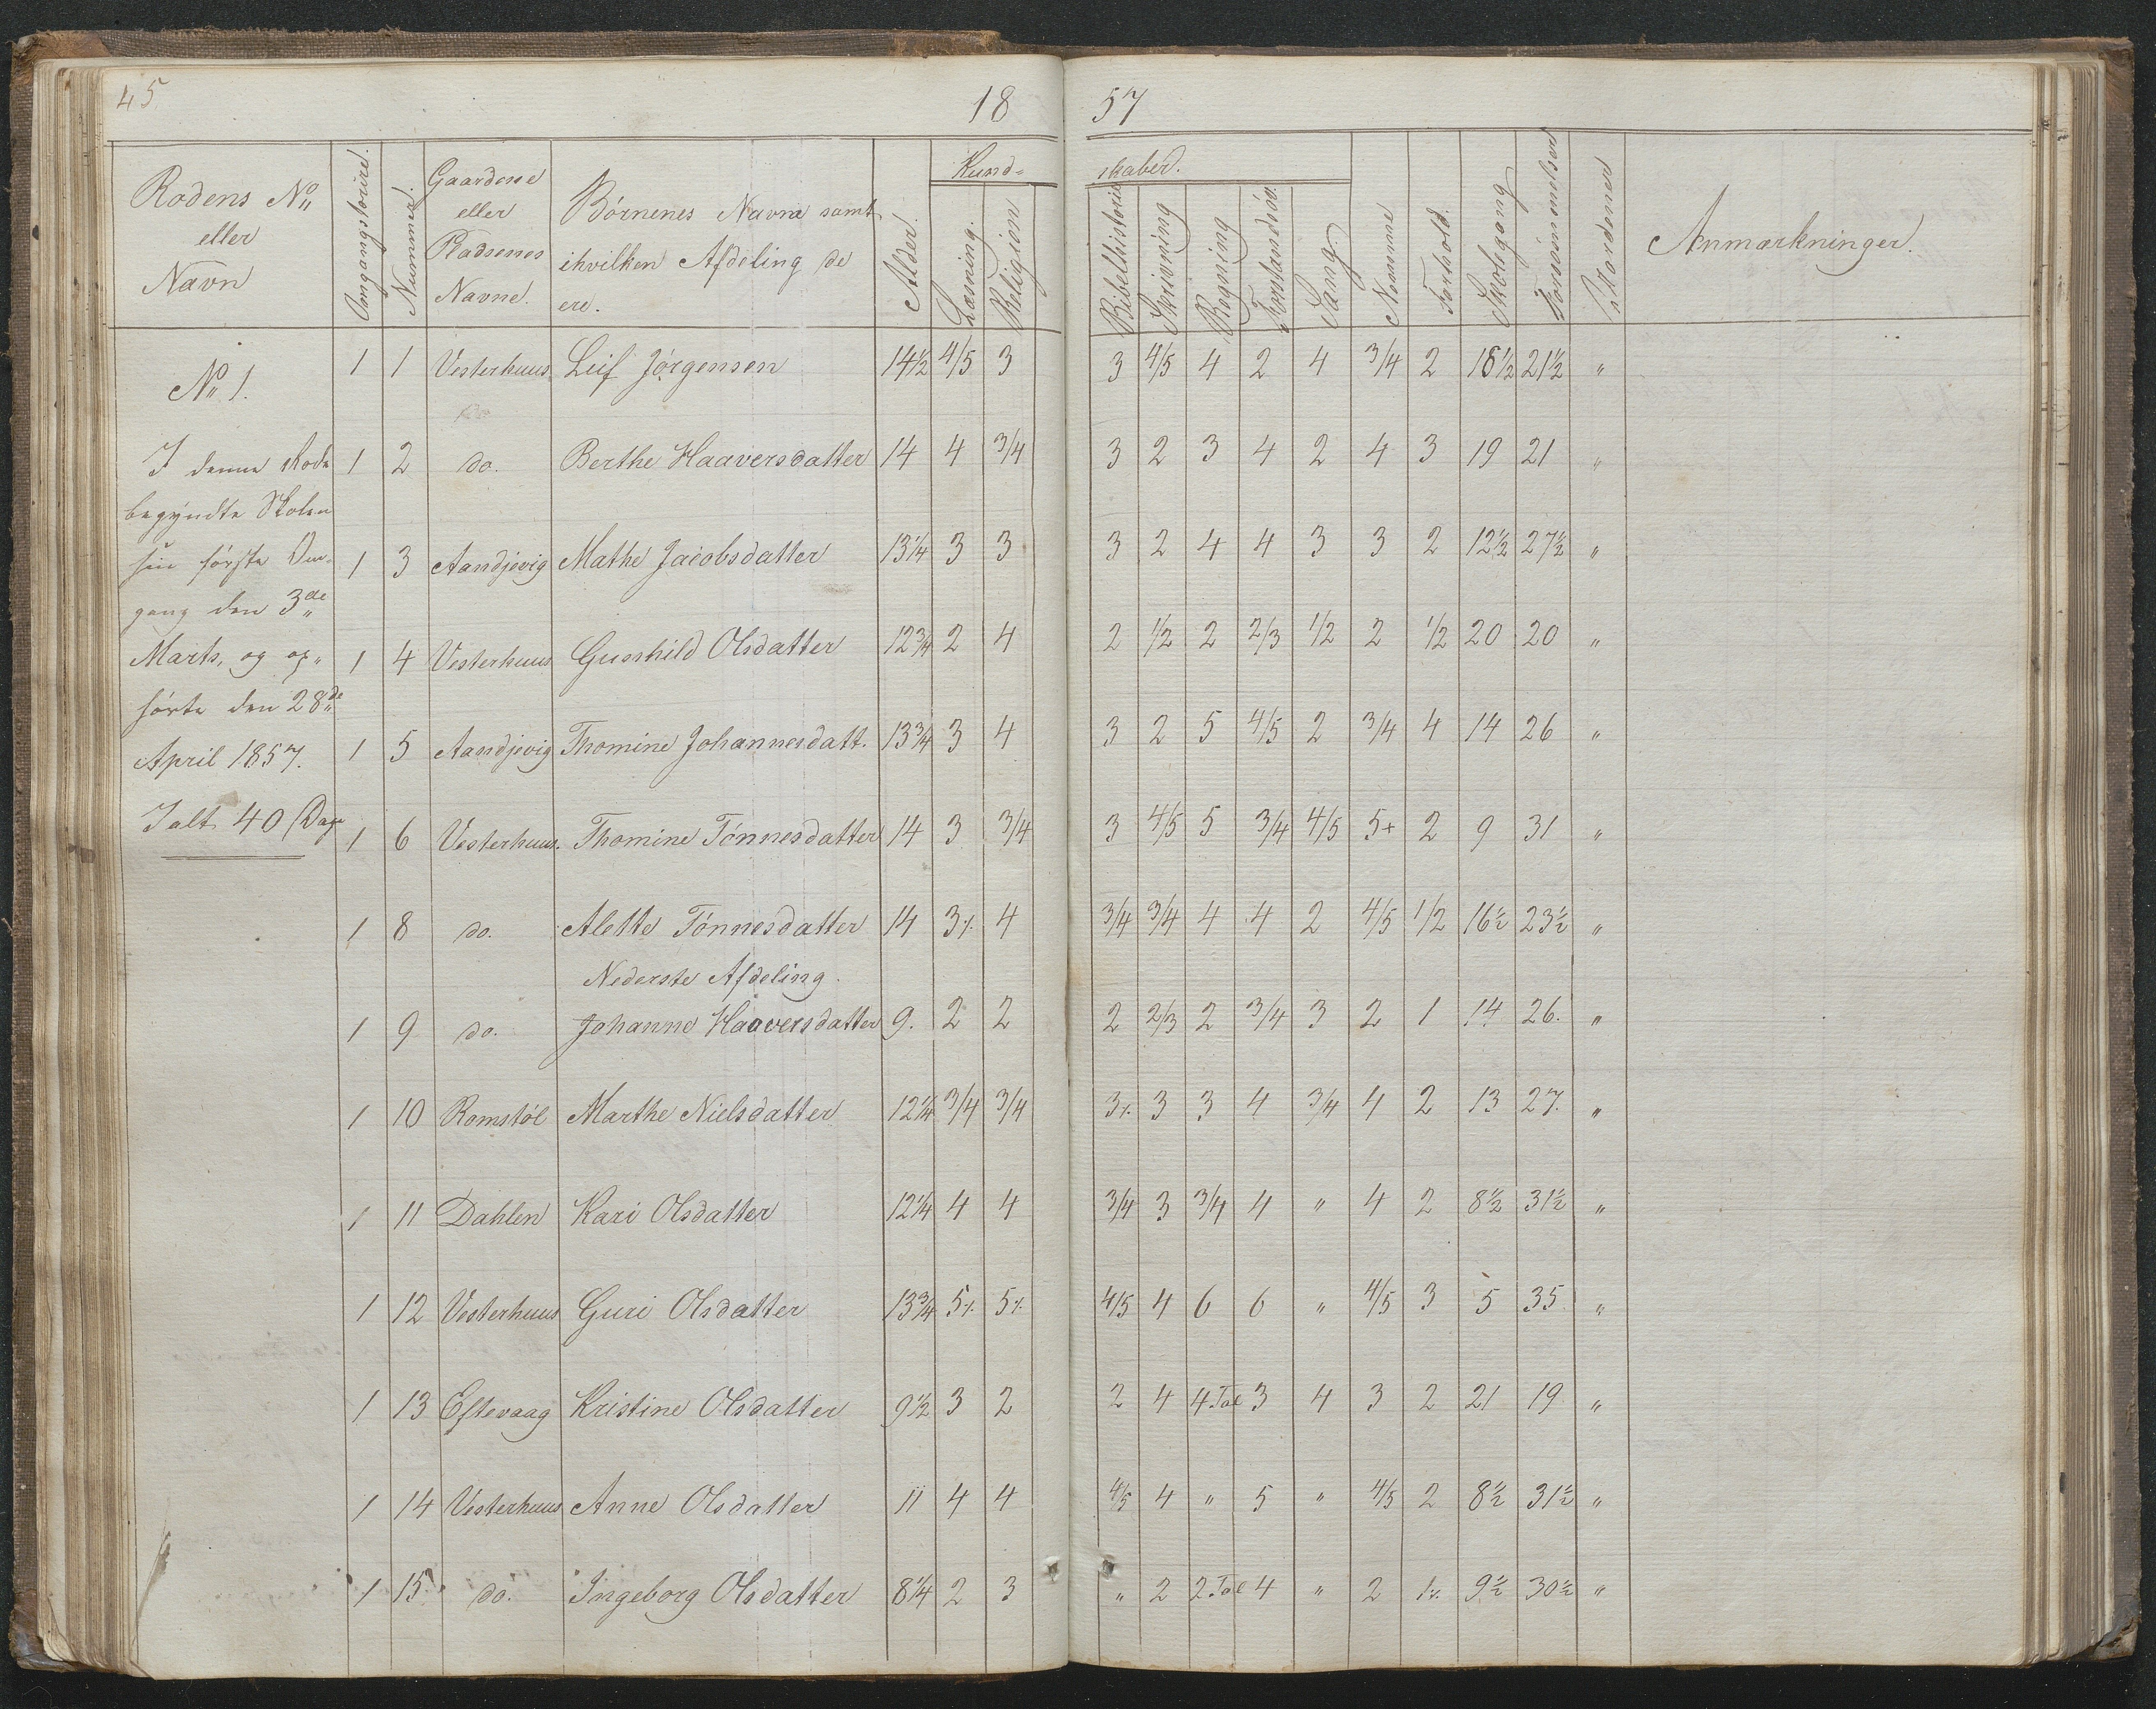 45
18 57
Rodens No eller Navn | Omgangstourer. | Nummer. | Gaardene eller Pladsenes Navne. | Børnenes Navne samt ihvilken Afdeling de ere. | Alder. | Kundskaber. Læsning. | Religion | Bibelhistorie | Skrivning | Regning | Forstandsöv. | Sang. | Nemme | Forhold. | Skolegang | Forsømmelser | Anmærkninger.
No 1.
I denne Rode
begyndte Skolen
sin første Om-
gang den 3de
Marts, og op-
hørte den 28de
April 1857.
Ialt 40 Dage
1 1 Vesterhuus Leif Jörgensen 14½ 4/5 3 3 4/5 4 2 4 3/4 2 18½ 21½ "
1 2 do. Berthe Haaversdatter 14 4 3/4 3 2 3 4 2 4 3 19 21 "
1 3 Aandjevig Mathe Jacobsdatter 13¼ 3 3 3 2 4 4 3 3 2 12½ 27½ "
1 4 Vesterhuus Gunhild Olsdatter 12¾ 2 4 2 1/2 2 2/3 1/2 2 1/2 20 20 "
1 5 Aandjevig Thomine Johannesdatt. 13¾ 3 4 3 2 5 4/5 2 3/4 4 14 26 "
1 6 Vesterhuus. Thomine Tönnesdatter 14 3 3/4 3 4/5 5 3/4 4/5 5+ 2 9 31 "
1 8 do. Alette Tönnesdatter 14 3⁒ 4 3/4 3/4 4 4 2 4/5 1/2 16½ 23½ "
Nederste Afdeling.
1 9 do. Johanne Haaversdatter 9. 2 2 2 2/3 2 3/4 3 2 1 14 26. "
1 10 Romstöl Marthe Nielsdatter 12¼ 3/4 3/4 3⁒ 3 3 4 3/4 4 2 13 27. "
1 11 Dahlen Kari Olsdatter 12¼ 4 4 3/4 3 3/4 4 " 4 2 8½ 31½ "
1 12 Vesterhuus Guri Olsdatter 13¾ 5⁒ 5⁒ 4/5 4 6 6 " 4/5 3 5 35 "
1 13 Eftevaag Kristine Olsdatter 9½ 3 2 2 4 4 Tal 3 4 3 2 21 19 "
1 14 Vesterhuus Anne Olsdatter 11 4 4 4/5 4 " 5 " 4/5 2 8½ 31½ "
1 15. do. Ingeborg Olsdatter 8¼ 2 3 " 2 2 Tal 4 " 2 1⁒ 9½ 30½ "